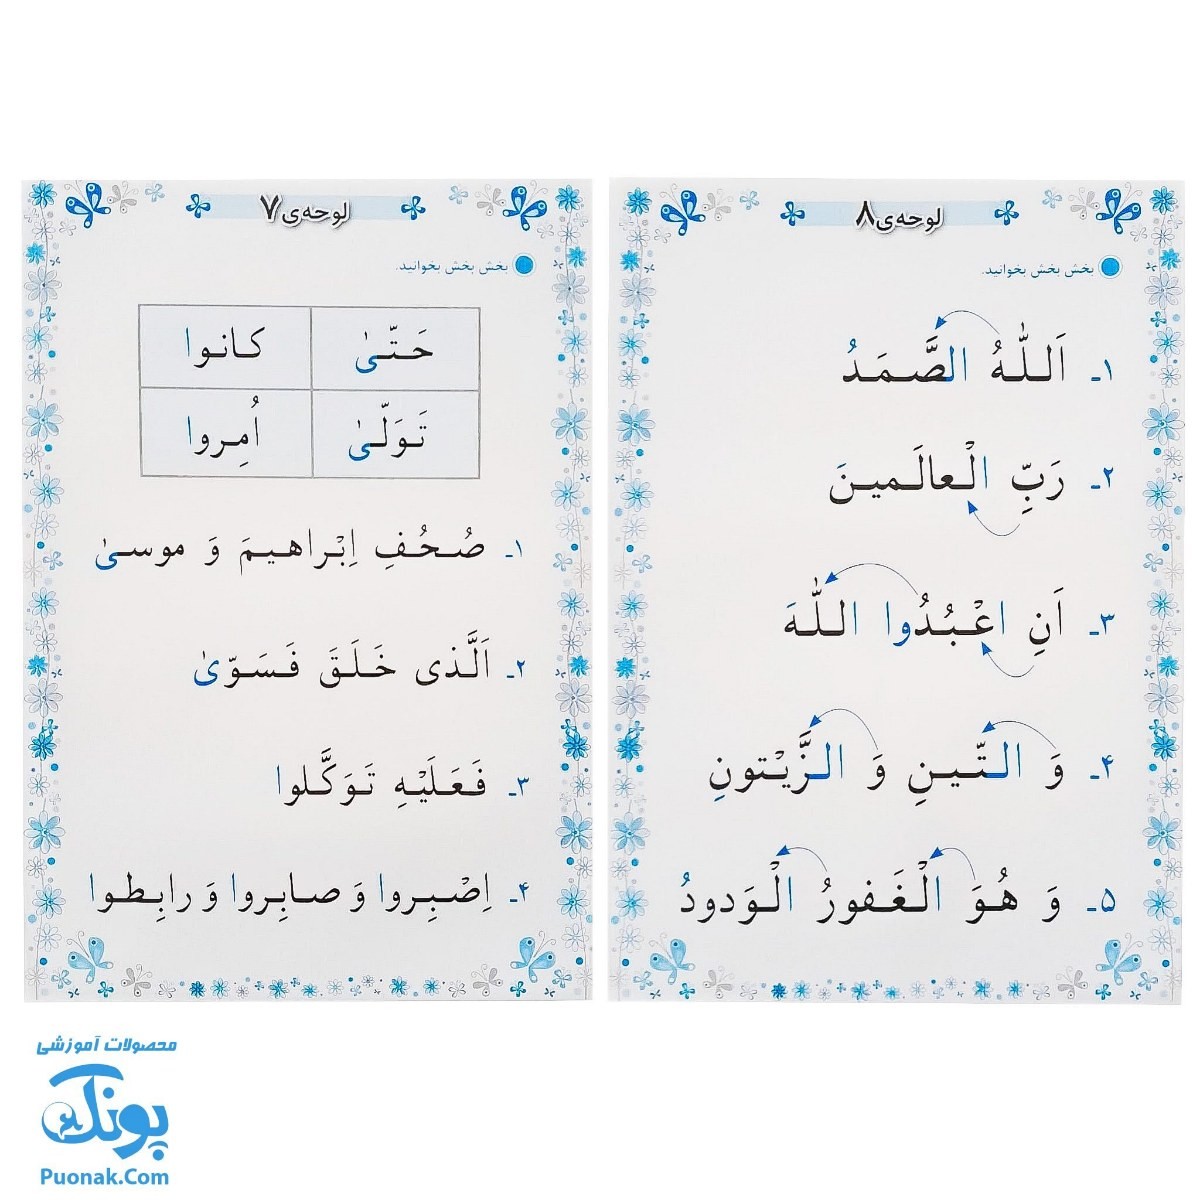 لوحه‌ی ۸
بخش بخش بخوانید.
۱ـ اَللّٰهُ الصَّمَدُ
۲ـ رَبِّ الْعالَمینَ
۳ـ اَنِ اعْبُدُوا اللّٰهَ
۴ـ وَ التّینِ وَ الزَّیْتونِ
۵ـ وَ هُوَ الْغَفورُ الْوَدودُ
لوحه‌ی ۷
بخش بخش بخوانید.
حَتّیٰ کانوا
تَوَلّیٰ اُمِروا
۱ـ صُحُفِ اِبْراهیمَ وَ موسیٰ
۲ـ اَلَّذی خَلَقَ فَسَوّیٰ
۳ـ فَعَلَیْهِ تَوَکَّلوا
۴ـ اِصْبِروا وَ صابِروا وَ رابِطوا
محصولات آموزشی
پونک
Puonak.Com